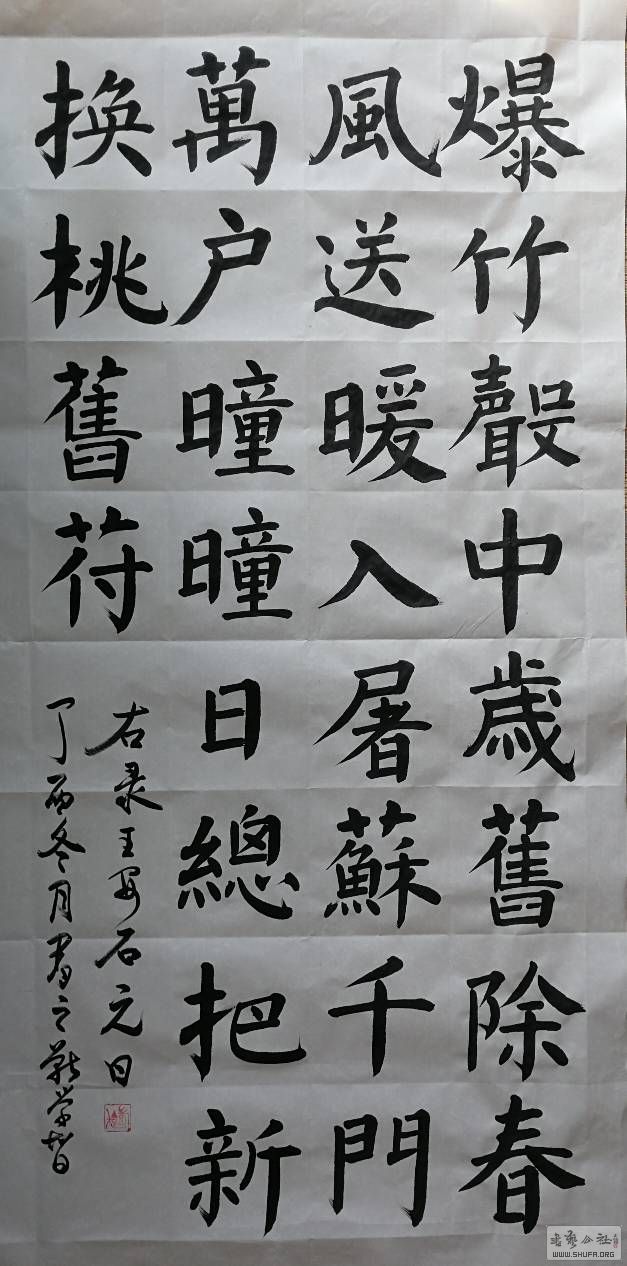 爆竹聲中歲舊除春
風送暖入屠蘇千門
萬户曈曈日總把新
换桃舊苻
右录王安石元日
丁酉冬月
书艺公社
WWW.SHUFA.ORG